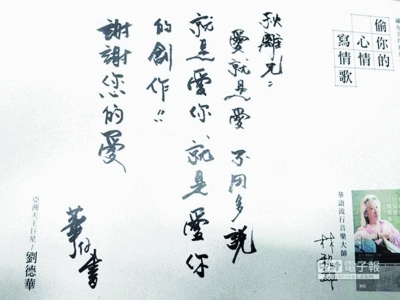 偷你的
心情
寫情歌
華語流行音樂大師
林秋離
秋離兄：
愛就是愛 不用多說
就是愛你 就是愛你
的創作!!
謝謝您的愛
華仔書
亞洲天王巨星/劉德華
電子報